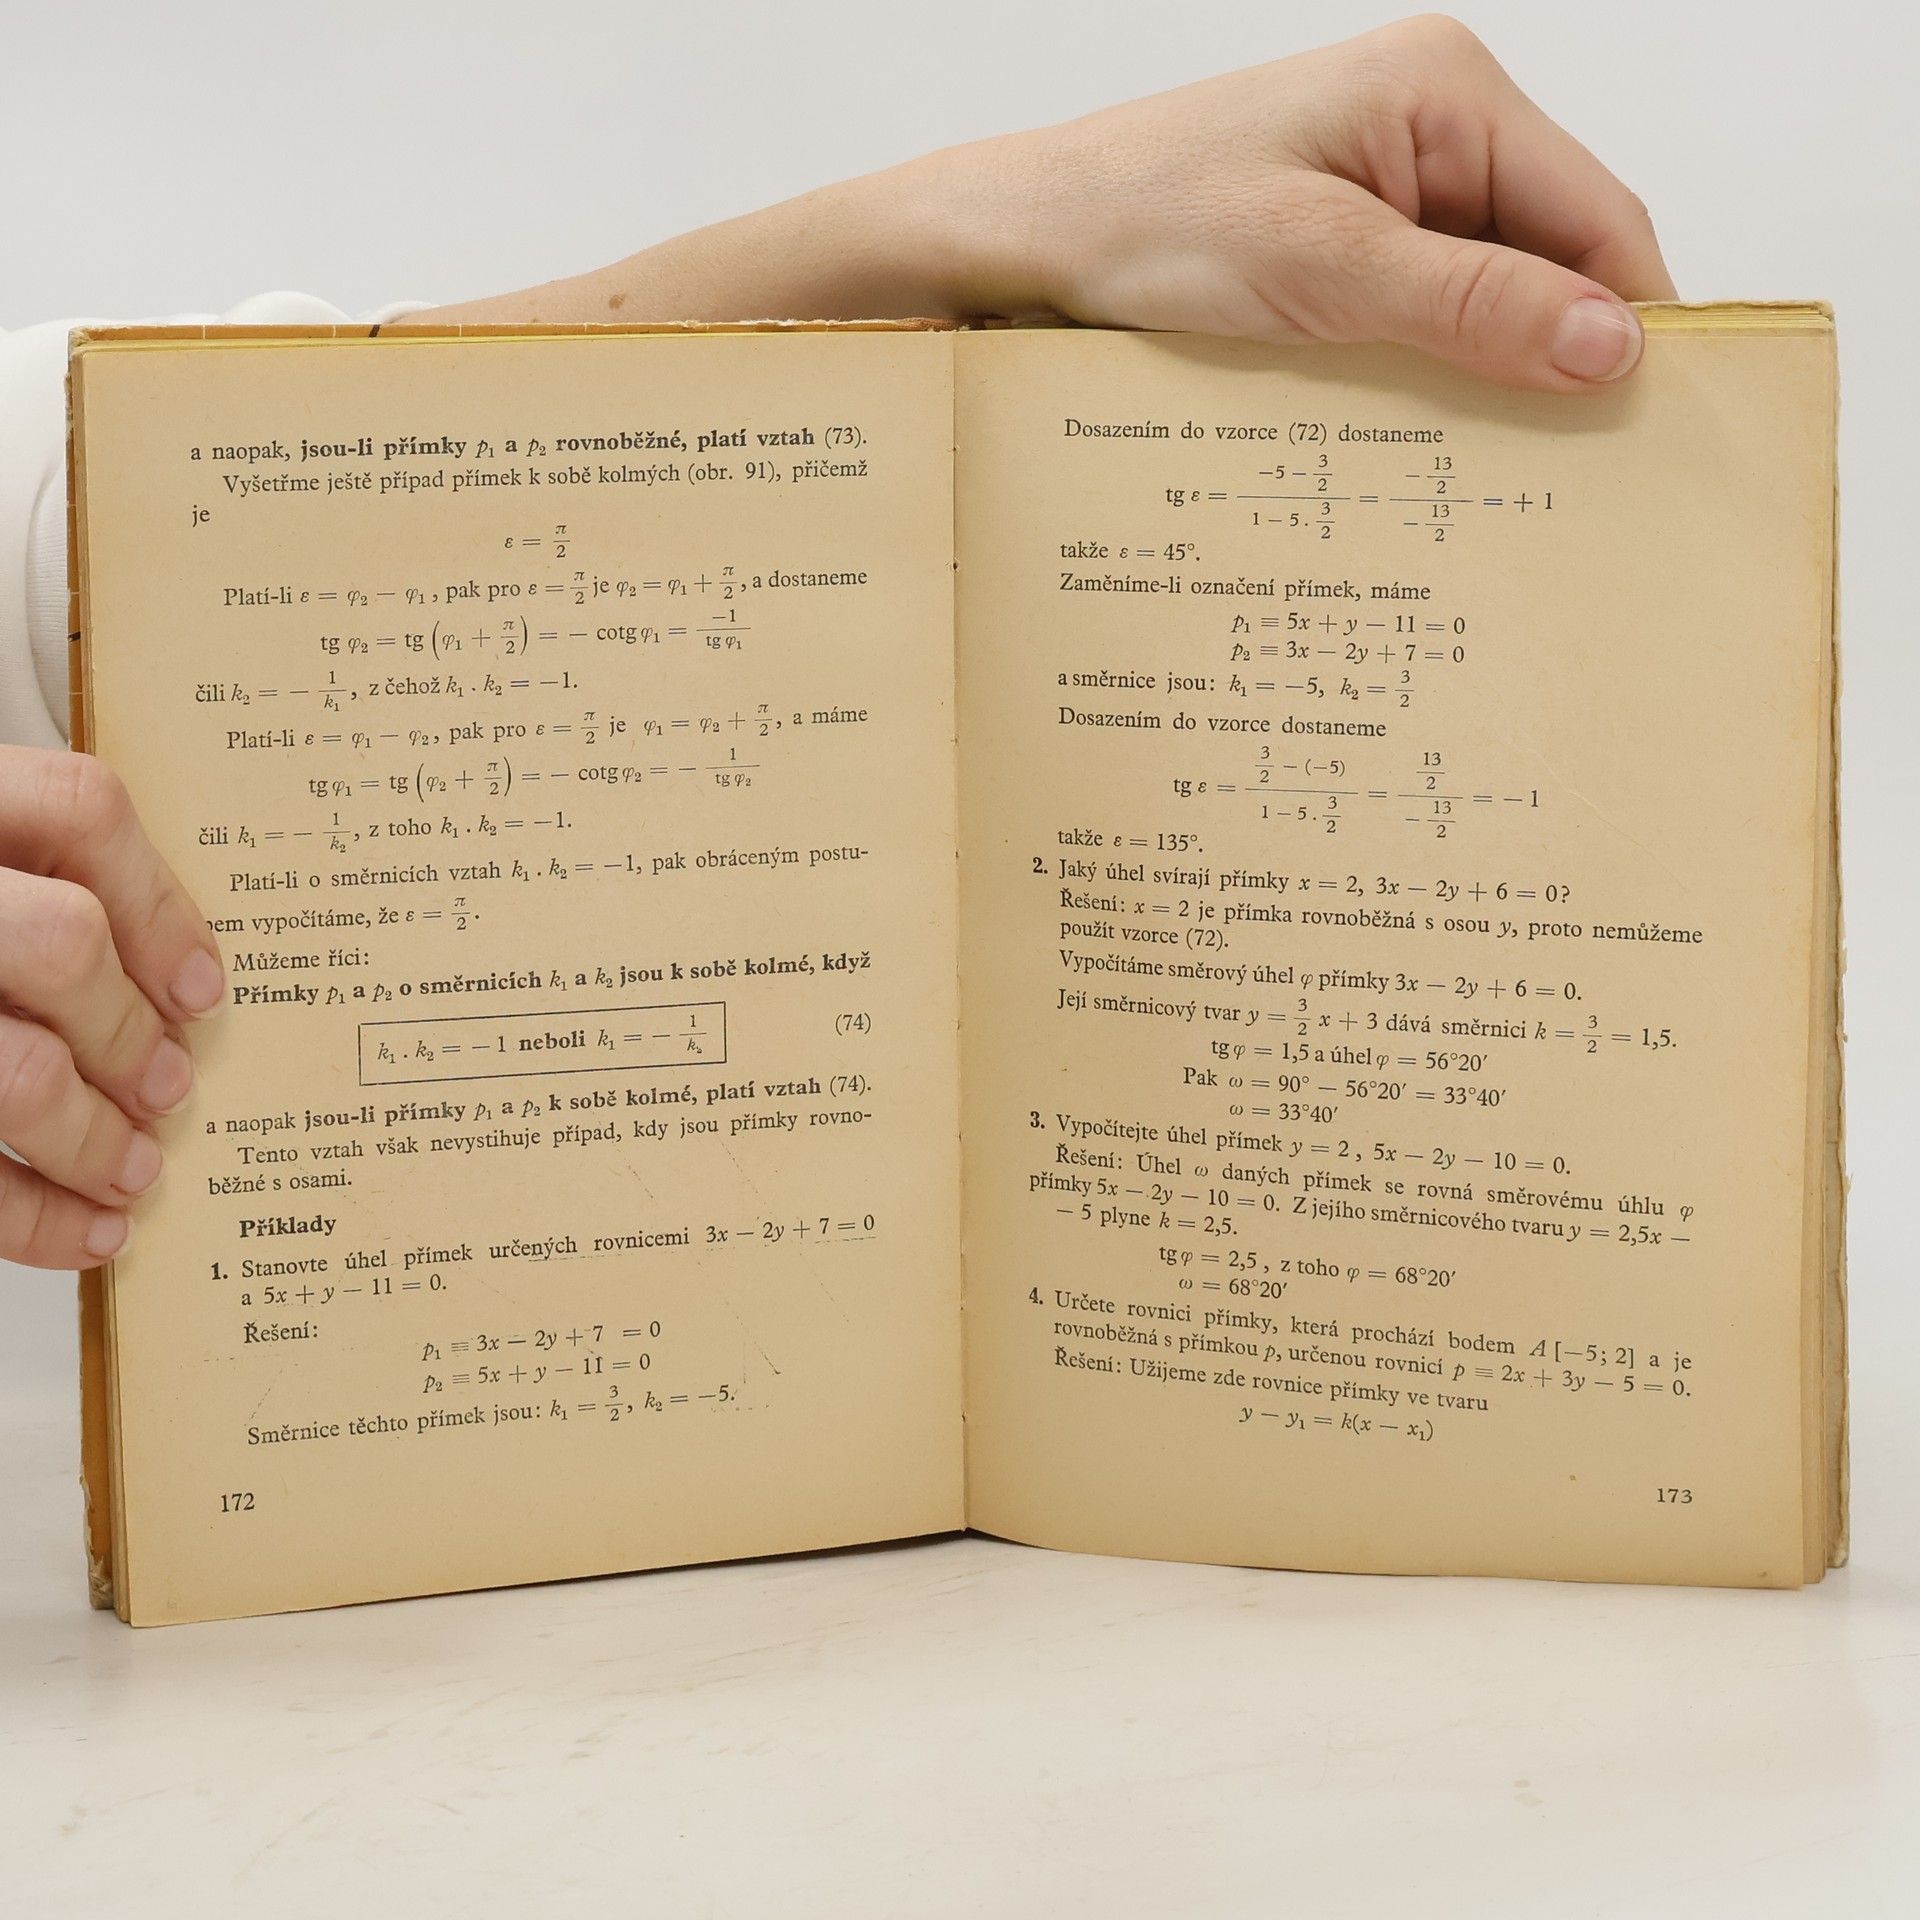 a naopak, jsou-li přímky p₁ a p₂ rovnoběžné, platí vztah (73).
Vyšetřme ještě případ přímek k sobě kolmých (obr. 91), přičemž
je
ε = π/2
Platí-li ε = φ₂ — φ₁, pak pro ε = π/2 je φ₂ = φ₁ + π/2, a dostaneme
tg φ₂ = tg (φ₁ + π/2) = — cotg φ₁ = —1/tg φ₁
čili k₂ = — 1/k₁, z čehož k₁ . k₂ = —1.
Platí-li ε = φ₁ — φ₂, pak pro ε = π/2 je φ₁ = φ₂ + π/2, a máme
tg φ₁ = tg (φ₂ + π/2) = — cotg φ₂ = — 1/tg φ₂
čili k₁ = — 1/k₂, z toho k₁ . k₂ = —1.
Platí-li o směrnicích vztah k₁ . k₂ = —1, pak obráceným postu-
pem vypočítáme, že ε = π/2.
Můžeme říci:
Přímky p₁ a p₂ o směrnicích k₁ a k₂ jsou k sobě kolmé, když
k₁ . k₂ = — 1 neboli k₁ = — 1/k₂ (74)
a naopak jsou-li přímky p₁ a p₂ k sobě kolmé, platí vztah (74).
Tento vztah však nevystihuje případ, kdy jsou přímky rovno-
běžné s osami.
Příklady
1. Stanovte úhel přímek určených rovnicemi 3x — 2y + 7 = 0
a 5x + y — 11 = 0.
Řešení:
p₁ ≡ 3x — 2y + 7 = 0
p₂ ≡ 5x + y — 11 = 0
Směrnice těchto přímek jsou: k₁ = 3/2, k₂ = —5.
172
Dosazením do vzorce (72) dostaneme
tg ε = (—5 — 3/2)/(1 — 5 . 3/2) = (— 13/2)/(— 13/2) = + 1
takže ε = 45°.
Zaměníme-li označení přímek, máme
p₁ ≡ 5x + y — 11 = 0
p₂ ≡ 3x — 2y + 7 = 0
a směrnice jsou: k₁ = —5, k₂ = 3/2
Dosazením do vzorce dostaneme
tg ε = (3/2 — (—5))/(1 — 5 . 3/2) = (13/2)/(— 13/2) = — 1
takže ε = 135°.
2. Jaký úhel svírají přímky x = 2, 3x — 2y + 6 = 0?
Řešení: x = 2 je přímka rovnoběžná s osou y, proto nemůžeme
použít vzorce (72).
Vypočítáme směrový úhel φ přímky 3x — 2y + 6 = 0.
Její směrnicový tvar y = 3/2 x + 3 dává směrnici k = 3/2 = 1,5.
tg φ = 1,5 a úhel φ = 56°20′
Pak ω = 90° — 56°20′ = 33°40′
ω = 33°40′
3. Vypočítejte úhel přímek y = 2 , 5x — 2y — 10 = 0.
Řešení: Úhel ω daných přímek se rovná směrovému úhlu φ
přímky 5x — 2y — 10 = 0. Z jejího směrnicového tvaru y = 2,5x —
— 5 plyne k = 2,5.
tg φ = 2,5 , z toho φ = 68°20′
ω = 68°20′
4. Určete rovnici přímky, která prochází bodem A [—5; 2] a je
rovnoběžná s přímkou p, určenou rovnicí p ≡ 2x + 3y — 5 = 0.
Řešení: Užijeme zde rovnice přímky ve tvaru
y — y₁ = k(x — x₁)
173